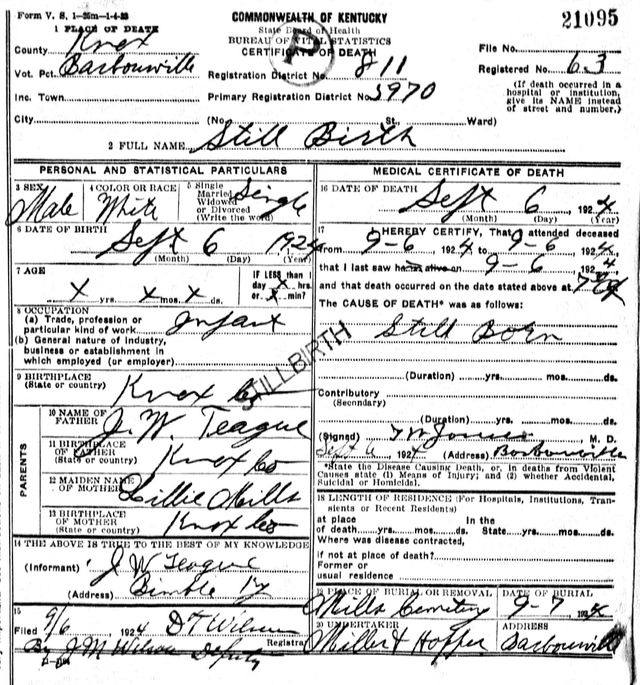 Form V. S. 1-35m-1-4-23
COMMONWEALTH OF KENTUCKY
State Board of Health
BUREAU OF VITAL STATISTICS
CERTIFICATE OF DEATH
21095
1 PLACE OF DEATH
County Knox
Vot. Pct. Barbourville
Inc. Town
City
Registration District No. 811
Primary Registration District No. 5970
(No. St., Ward)
File No.
Registered No. 63
(If death occurred in a
hospital or institution,
give its NAME instead
of street and number.)
2 FULL NAME Still Birth
PERSONAL AND STATISTICAL PARTICULARS
3 SEX Male
4 COLOR OR RACE White
5 Single
Married
Widowed
or Divorced
(Write the word) Single
6 DATE OF BIRTH Sept 6 1924
(Month) (Day) (Year)
7 AGE
X yrs. X mos. X ds.
IF LESS than 1
day X hrs.
or X min?
8 OCCUPATION
(a) Trade, profession or
particular kind of work Infant
(b) General nature of industry,
business or establishment in
which employed (or employer)
STILLBIRTH
9 BIRTHPLACE
(State or country) Knox Co
PARENTS
10 NAME OF
FATHER J. W. Teague
11 BIRTHPLACE
OF FATHER
(State or country) Knox Co
12 MAIDEN NAME
OF MOTHER Lillie Mills
13 BIRTHPLACE
OF MOTHER
(State or country) Knox Co
14 THE ABOVE IS TRUE TO THE BEST OF MY KNOWLEDGE
(Informant) J W Teague
(Address) Bimble Ky
15
Filed 9/6 1924 D T Wilson
Registrar
By J M Wilson Deputy
MEDICAL CERTIFICATE OF DEATH
16 DATE OF DEATH Sept 6 1924
(Month) (Day) (Year)
17 I HEREBY CERTIFY, That I attended deceased
from 9-6, 1924 to 9-6, 1924,
that I last saw alive on 9-6, 1924,
and that death occurred on the date stated above at
The CAUSE OF DEATH* was as follows:
Still Born
(Duration) yrs. mos. ds.
Contributory
(Secondary)
(Duration) yrs. mos. ds.
(Signed) Jones, M. D.
Sept 6 1924 (Address) Barbourville
*State the Disease Causing Death, or, in deaths from Violent
Causes state (1) Means of Injury; and (2) whether Accidental,
Suicidal or Homicidal.
18 LENGTH OF RESIDENCE (For Hospitals, Institutions, Tran-
sients or Recent Residents)
at place In the
of death yrs. mos. ds. State yrs. mos. ds.
Where was disease contracted,
if not at place of death?
Former or
usual residence
19 PLACE OF BURIAL OR REMOVAL
Mills Cemetery
DATE OF BURIAL
9-7 1924
20 UNDERTAKER
Miller & Hopper
ADDRESS
Barbourville